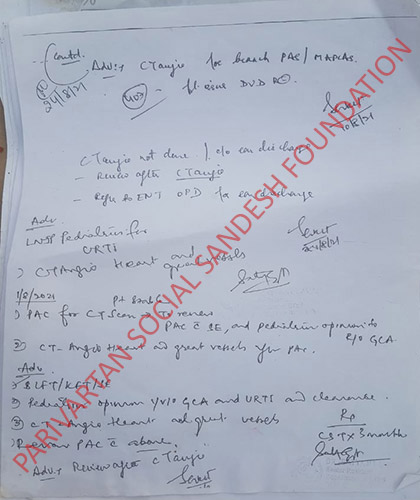 (Contd.
Adv:- CTangio for branch PAS / MAPCAS.
24/8/21
fl cine DVD
10/8/21
CTangio not done / c/o ear discharge
- Review after CTangio
- Refer to ENT OPD for ear discharge
Adv
LNJP Pediatrics for
URTI
) CT Angio Heart and
great vessels
1/8/2021
) PAC for CT Scan → To review
PAC c̄ SE, and Pediatrics opinion to
R/O GCA
2) CT- Angio Heart and great vessels PAC.
Adv
) LFT/KFT/SE
) Pediatrics opinion GCA and URTI and clearance.
3) CT- Angio Heart and great vessels
) Review PAC c̄ above.
CST x 3 months
Adv:- Review after CTangio
PARIVARTAN SOCIAL SANDESH FOUNDATION